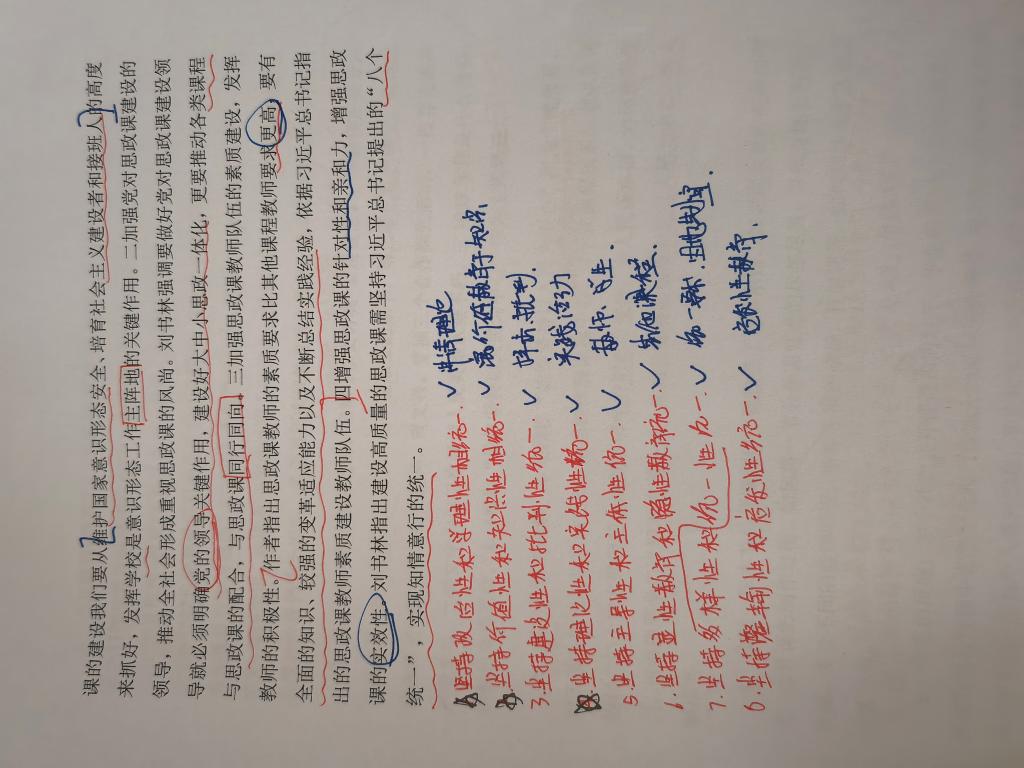 课的建设我们要从维护国家意识形态安全、培育社会主义建设者和接班人的高度
来抓好，发挥学校是意识形态工作主阵地的关键作用。二加强党对思政课建设的
领导，推动全社会形成重视思政课的风尚。刘书林强调要做好党对思政课建设领
导就必须明确党的领导关键作用，建设好大中小思政一体化，更要推动各类课程
与思政课的配合，与思政课同行同向。三加强思政课教师队伍的素质建设，发挥
教师的积极性。作者指出思政课教师的素质要求比其他课程教师要求更高，要有
全面的知识、较强的变革适应能力以及不断总结实践经验，依据习近平总书记指
出的思政课教师素质建设教师队伍。四增强思政课的针对性和亲和力，增强思政
课的实效性。刘书林指出建设高质量的思政课需坚持习近平总书记提出的“八个
统一”，实现知情意行的统一。
坚持政治性和学理性相统一. ✓ 讲理论
坚持价值性和知识性相统一. ✓
3. 坚持建设性和批判性统一. ✓
坚持理论性和实践性统一. ✓
5. 坚持主导性和主体性统一. ✓ 教师 学生.
6. 坚持显性教育和隐性教育统一. ✓
7. 坚持多样性和统一性统一. ✓ 统一要求. 因地制宜.
坚持灌输性和启发性统一. ✓ 启发性教育.